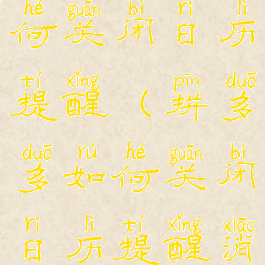 hé guān bì rì lì
何关闭日历
tí xǐng pīn duō
提醒(拼多
duō rú hé guān bì
多如何关闭
rì lì tí xǐng xiāo
日历提醒消